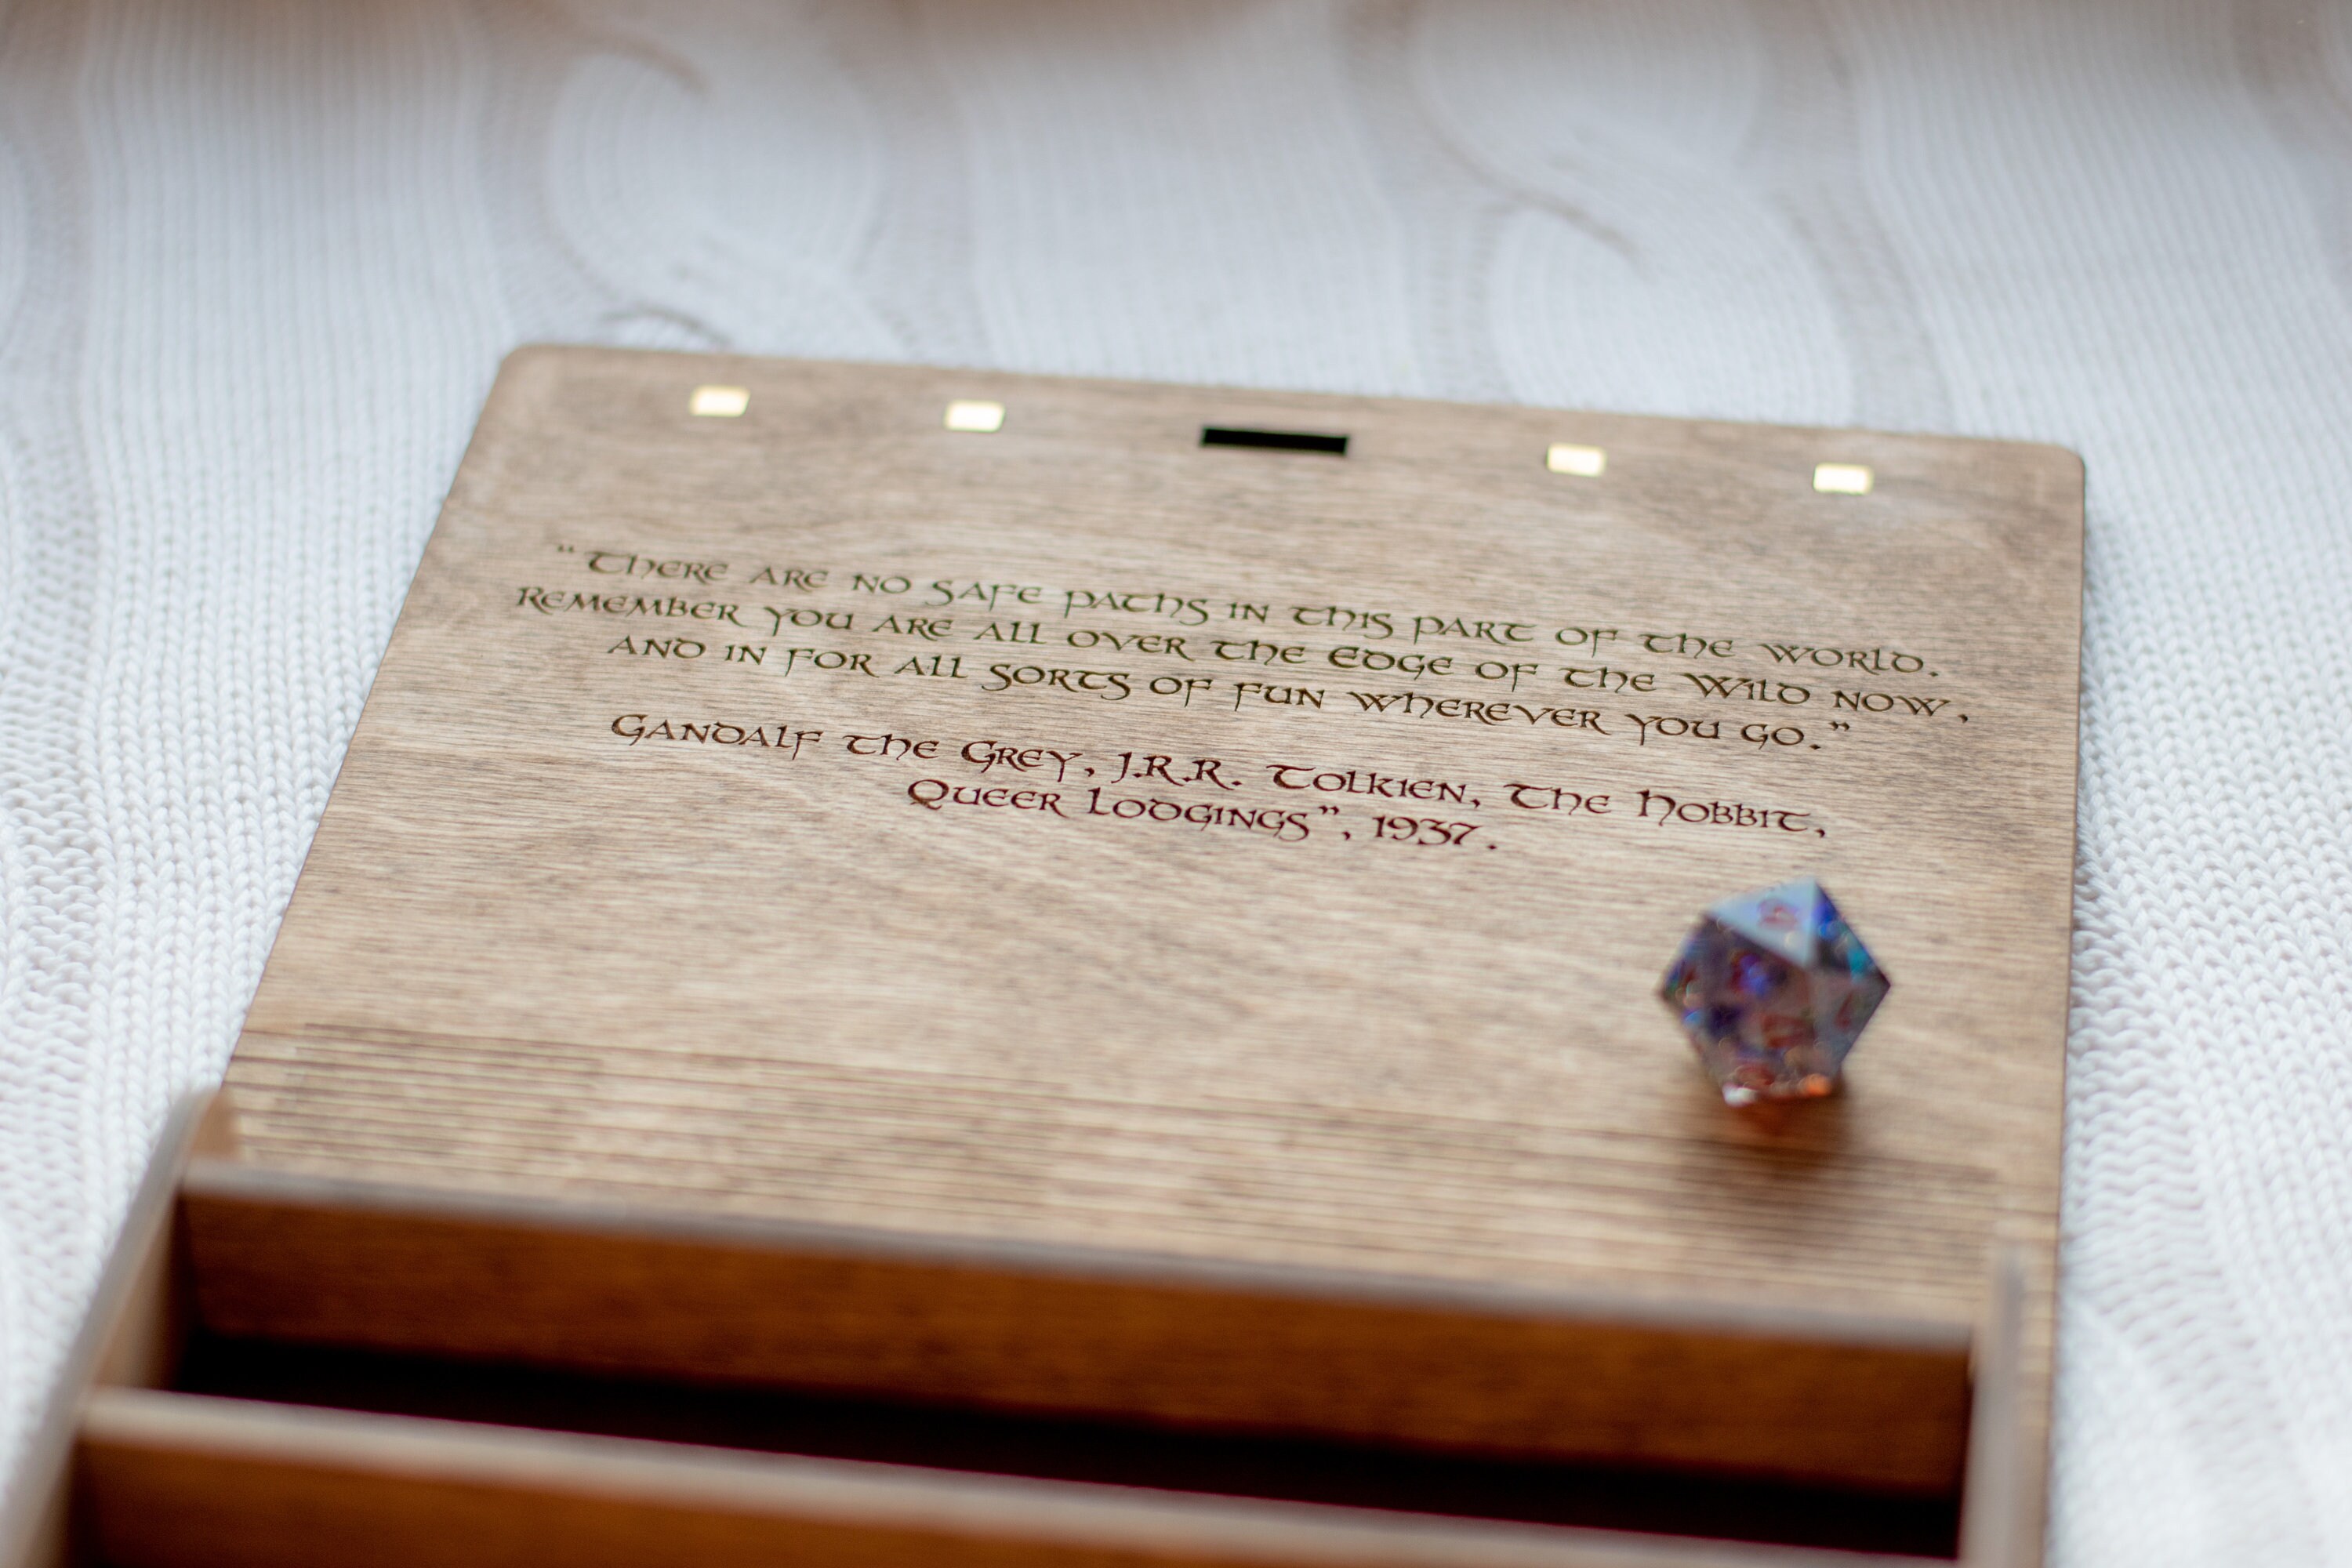 “There are no safe paths in this part of the world.
Remember you are all over the Edge of the Wild now,
and in for all sorts of fun wherever you go.”
Gandalf the Grey, J.R.R. Tolkien, The Hobbit,
Queer Lodgings”, 1937.